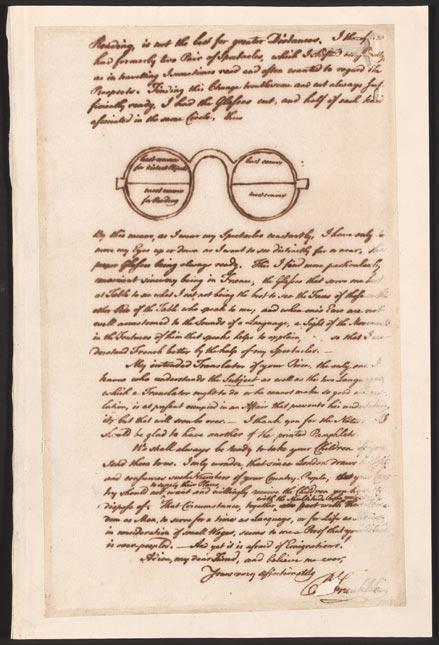 Reading, is not the best for greater Distances. I therefore
had formerly two Pair of Spectacles, which I shifted occasionally,
as in travelling I sometimes read and often wanted to regard the
Prospects. Finding this Change troublesome and not always suf-
ficiently ready, I had the Glasses cut, and half of each kind
associated in the same Circle, thus
least convex
for distant Objects
least convex
most convex
for Reading
most convex
By this means, as I wear my Spectacles constantly, I have only to
move my Eyes up or down as I want to see distinctly far or near, the
proper Glasses being always ready. This I find more particularly
convenient since my being in France, the Glasses that serve me best
at Table to see what I eat, not being the best to see the Faces of those on the
other Side of the Table who speak to me; and when one's Ears are not
well accustomed to the Sounds of a Language, a Sight of the Movements
in the Features of him that speaks helps to explain, so that I un-
derstand French better by the help of my Spectacles. —
My intended Translator of your Piece, the only one I
know who understands the Subject as well as the two Languages,
which a Translator ought to do or he cannot make so good a Trans-
lation, is at present occupied in an Affair that prevents his undertaking
it; but that will soon be over. — I thank you for the Notes.
I should be glad to have another of the printed Pamphlets.
We shall always be ready to take your Children if you
send them to us. I only wonder, that since London draws to itself
and consumes such Numbers of your Country People, that your Coun-
to supply their Places
try should not want and willingly receive the Children you have to
dispose of. That Circumstance, together with the
dom as Men, to serve for a time as Lacqueys, or for Life as
in consideration of small Wages, seems to me a Proof that your
is over-peopled. — And yet it is afraid of Emigrations.
Adieu, my dear Friend, and believe me ever,
Yours very affectionately
B Franklin